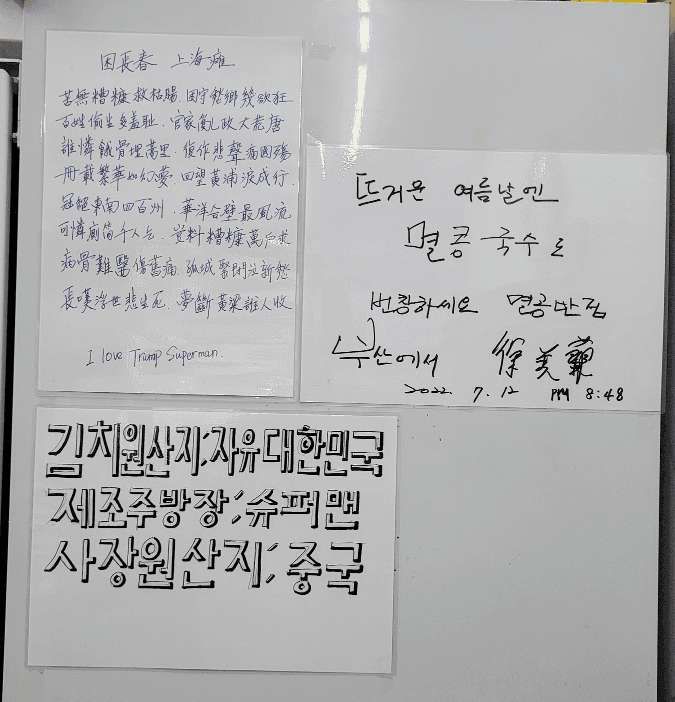 困長春 上海灘
苦無糟糠救枯腸 困守愁鄉幾欲狂
百姓偷生多羞恥 官家亂政大荒唐
誰憐餓骨埋蒿里 偵作悲聲病國殤
冊載繁華如幻夢 回望黃浦淚成行
冠絕東南四百州 華洋合璧最風流
可憐廁筒千人去 豈料糟糠萬戶求
病骨難醫傷舊痛 孤城緊閉注新愁
長嘆浮世悲生死 夢斷黃梁誰人收
I love Trump Superman.
뜨거운 여름날엔
멸콩국수로
번창하세요 멸공반점
부산에서 徐美蘭
2022 7.12 PM 8:48
김치원산지;자유대한민국
제조주방장;슈퍼맨
사장원산지;중국